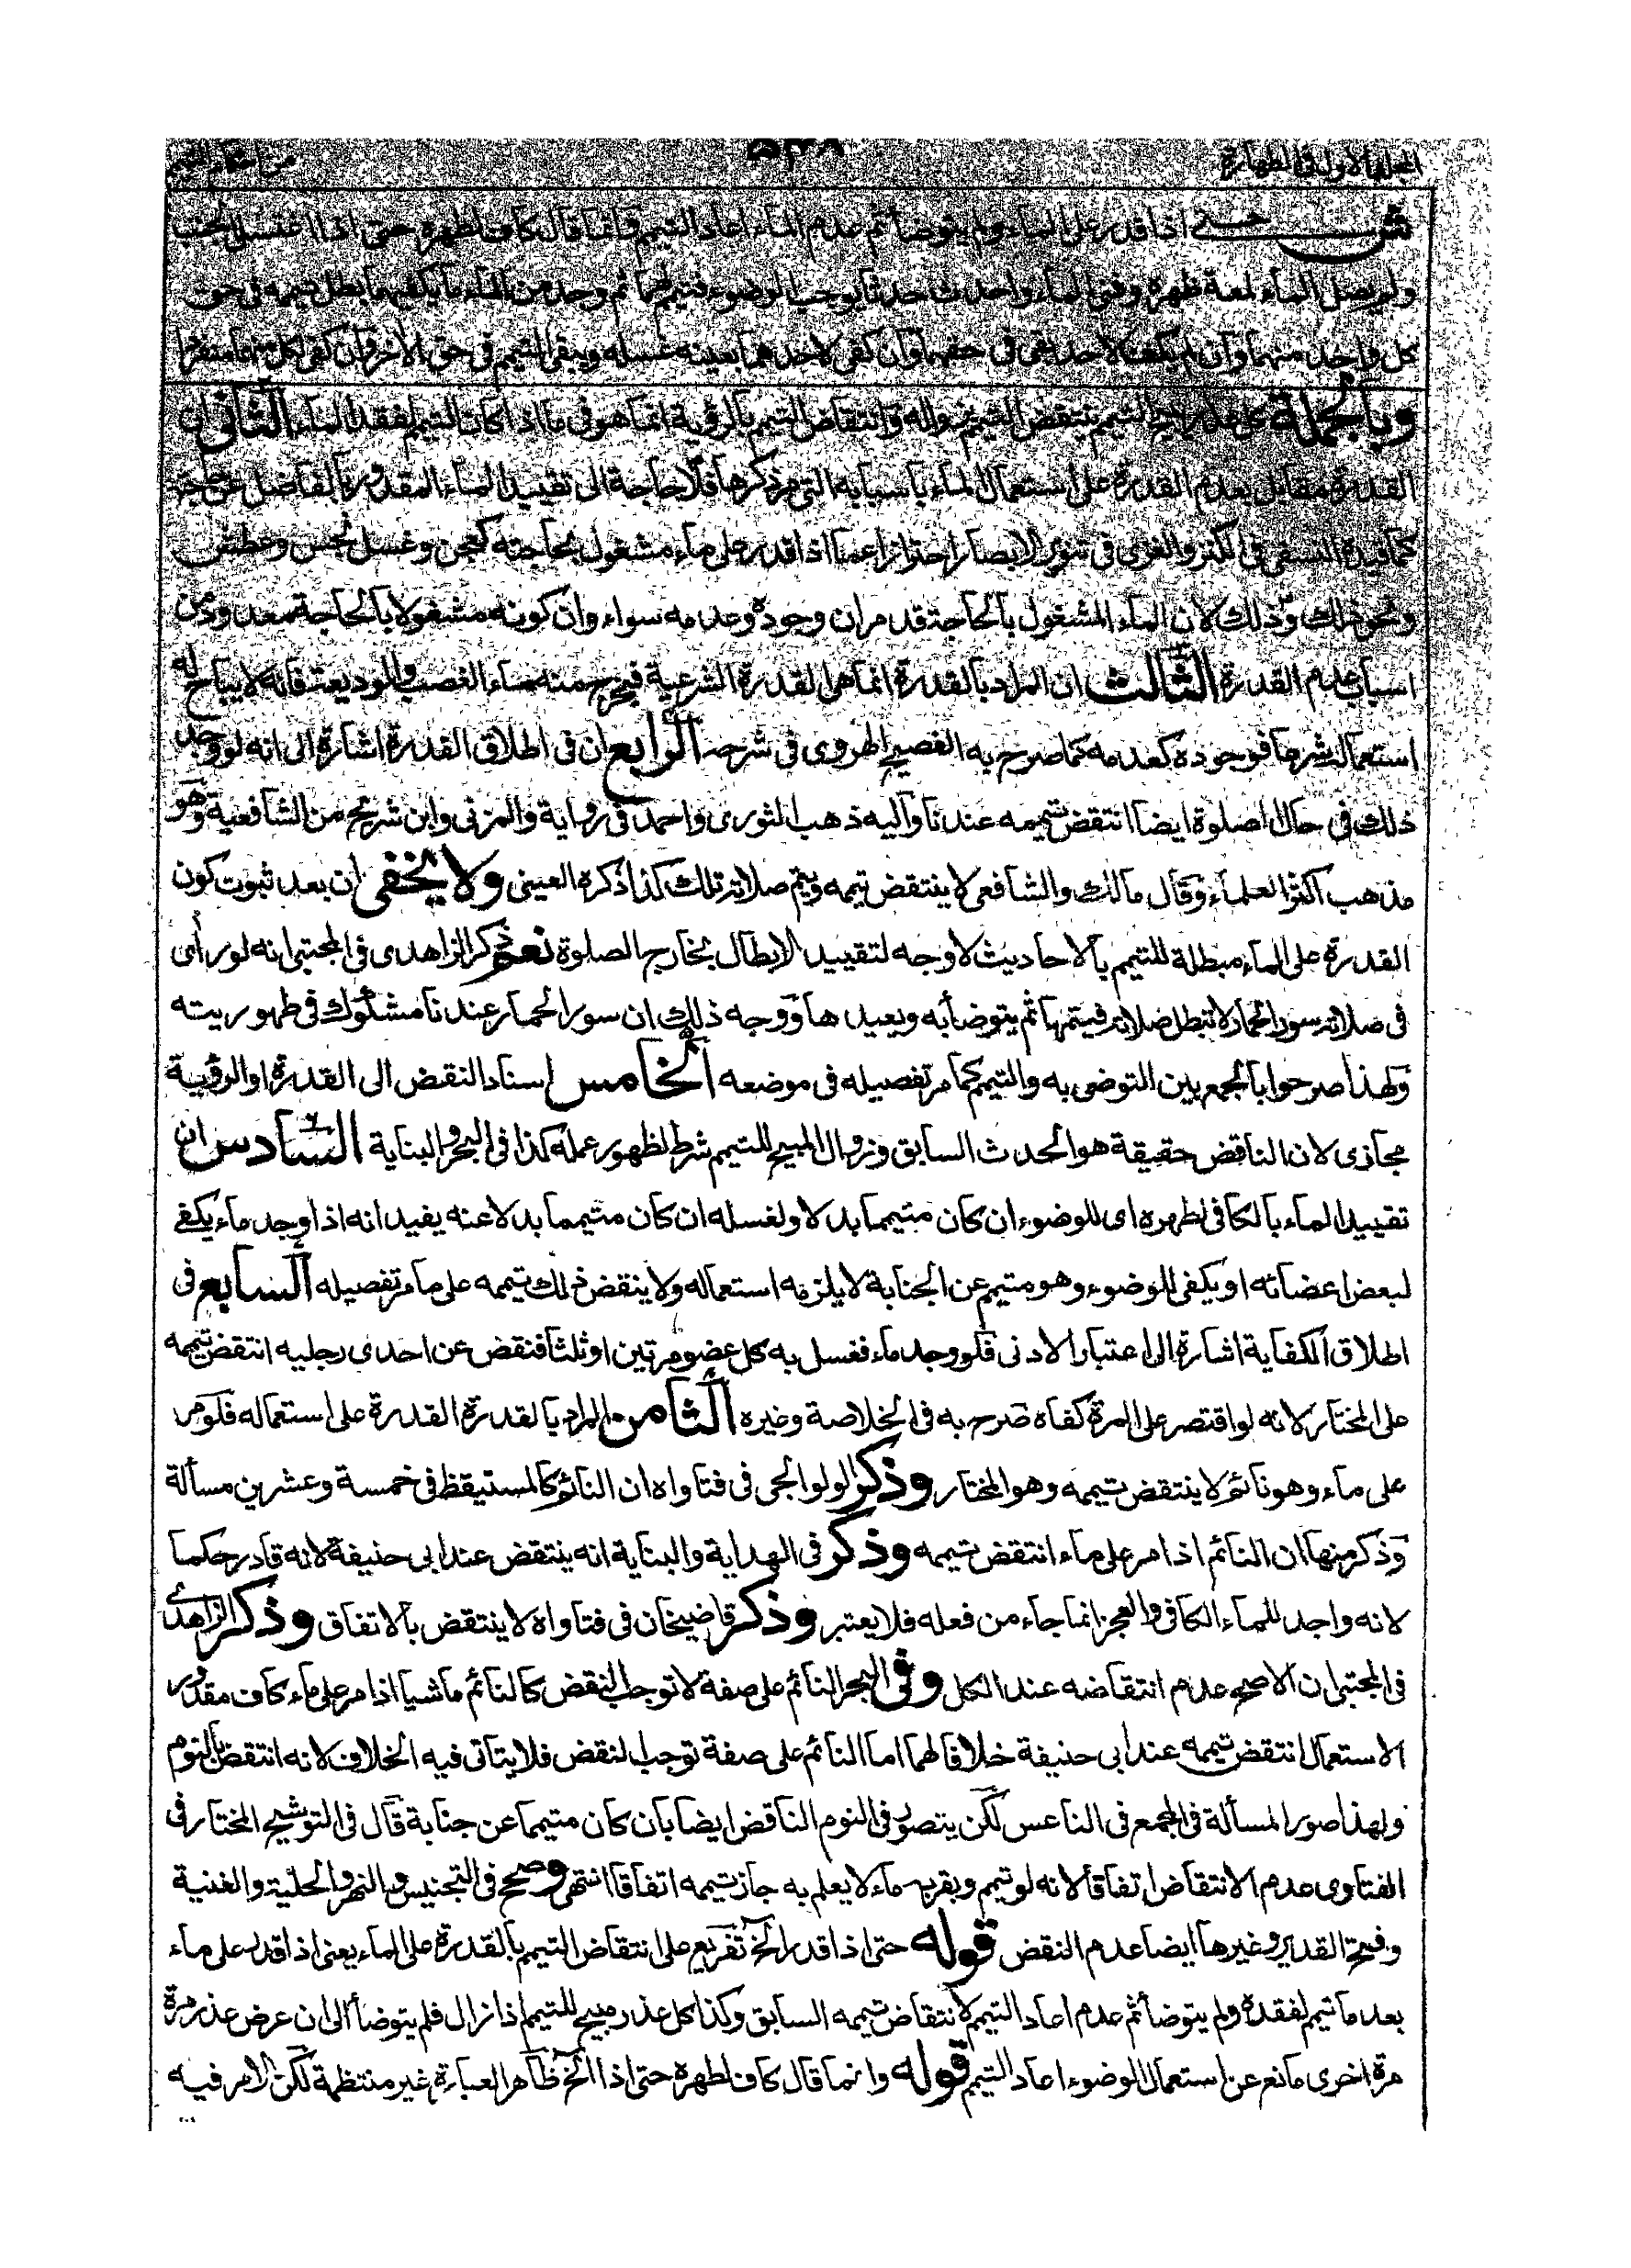 المجلد الاول فى الطهارة ٥٣٨
ش حتى اذا قدر على الماء ولم يتوضأ ثم عدم الماء اعاد التيمم وانما قال كاف لطهره حتى اذا اغتسل الجنب
ولم يصل الماء لمعة ظهره وفنى الماء واحدث حدثا يوجب الوضوء فتيمم لهما ثم وجد من الماء ما يكفيهما بطل تيممه فى حق
كل واحد منهما وان لم يكف لاحد بقى فى حقهما وان كفى لاحدهما بعينه غسله ويبقى التيمم فى حق الاخر وان كفى لكل منفردا
وبالجملة كل عذر يبيح التيمم ينتقض التيمم بزواله وانتقاض التيمم بالرؤية انما هو فى ما اذا كان التيمم لفقد الماء الثانى ان
القدرة مقابل بعدم القدرة على استعمال الماء باسبابه التى مر ذكرها فلا حاجة الى تقييد الماء المقدور بالفاضل عن حاجته
كما قيده النسفى فى الكنز والغزى فى تنوير الابصار احترازا عما اذا قدر على ماء مشغول بحاجته كعجن وغسل نجس وعطش
ونحو ذلك وذلك لان الماء المشغول بالحاجة قد مر ان وجوده وعدمه سواء وان كونه مشغولا بالحاجة معدود من
اسباب عدم القدرة الثالث ان المراد بالقدرة انما هى القدرة الشرعية فيخرج منه ماء الغصب والوديعة فانه لا يباح له
استعماله شرعا فوجوده كعدمه كما صرح به الفصيح الهروى فى شرحه الرابع ان فى اطلاق القدرة اشارة الى انه لو وجد
ذلك فى حال الصلوة ايضا انتقض تيممه عندنا واليه ذهب الثورى واحمد فى رواية والمزنى وابن شريح من الشافعية وهو
مذهب اكثر العلماء وقال مالك والشافعى لا ينتقض تيممه ويتم صلاته تلك كذا ذكره العينى ولا يخفى ان بعد ثبوت كون
القدرة على الماء مبطلة للتيمم بالاحاديث لا وجه لتقييد الابطال بخارج الصلوة نعم ذكر الزاهدى فى المجتبى انه لو رأى
فى صلاته سور الحمار لا تبطل صلاته فيتمها ثم يتوضأ به ويعيدها ووجه ذلك ان سور الحمار عندنا مشكوك فى طهوريته
ولهذا صرحوا بالجمع بين التوضى به والتيمم كما مر تفصيله فى موضعه الخامس اسناد النقض الى القدرة او الرؤية
مجازى لان الناقض حقيقة هو الحدث السابق وزوال المبيح للتيمم شرط لظهور عمله كذا فى البحر والبناية السادس ان
تقييد الماء بالكافى لطهره اى للوضوء ان كان متيمما بدلا ولغسله ان كان متيمما بدلا عنه يفيد انه اذا وجد ماء يكفى
لبعض اعضائه او يكفى للوضوء وهو متيمم عن الجنابة لا يلزمه استعماله ولا ينقض ذلك تيممه على ما مر تفصيله السابع فى
اطلاق الكفاية اشارة الى اعتبار الادنى فلو وجد ماء فغسل به كل عضو مرتين او ثلثا فنقض عن احدى رجليه انتقض تيممه
على المختار لانه لو اقتصر على المرة كفاه صرح به فى الخلاصة وغيره الثامن المراد بالقدرة القدرة على استعماله فلو مر
على ماء وهو نائم لا ينتقض تيممه وهو المختار وذكر الولوالجى فى فتاواه ان النائم كالمستيقظ فى خمسة وعشرين مسألة
وذكر منها ان النائم اذا مر على ماء انتقض تيممه وذكر فى الهداية والبناية انه ينتقض عند ابى حنيفة لانه قادر حكما
لانه واجد للماء الكافى والعجز انما جاء من فعله فلا يعتبر وذكر قاضيخان فى فتاواه لا ينتقض بالاتفاق وذكر الزاهدى
فى المجتبى ان الاصح عدم انتقاضه عند الكل وفى البحر النائم على صفة لا توجب النقض كالنائم ماشيا اذا مر على ماء كاف مقدور
الاستعمال انتقض تيممه عند ابى حنيفة خلافا لهما اما النائم على صفة توجب النقض فلا يتاتى فيه الخلاف لانه انتقض بالنوم
ولهذا صور المسألة فى المجمع فى الناعس لكن يتصور فى النوم الناقض ايضا بان كان متيمما عن جنابة قال فى التوشيح المختار فى
الفتاوى عدم الانتقاض اتفاقا لانه لو تيمم وبقربه ماء لا يعلم به جاز تيممه اتفاقا انتهى وصحح فى التجنيس والنهر والحلية والغنية
وفتح القدير وغيرها ايضا عدم النقض قوله حتى اذا قدر الخ تفريع على انتقاض التيمم بالقدرة على الماء يعنى اذا قدر على ماء
بعد ما تيمم لفقده ولم يتوضأ ثم عدم اعاد التيمم لانتقاض تيممه السابق وكذا كل عذر مبيح للتيمم اذا زال فلم يتوضأ الى ان عرض عذر مرة
مرة اخرى مانع عن استعمال الوضوء اعاد التيمم قوله وانما قال كاف لطهره حتى اذا الخ ظاهر العبارة غير منتظمة لكن الامر فيه